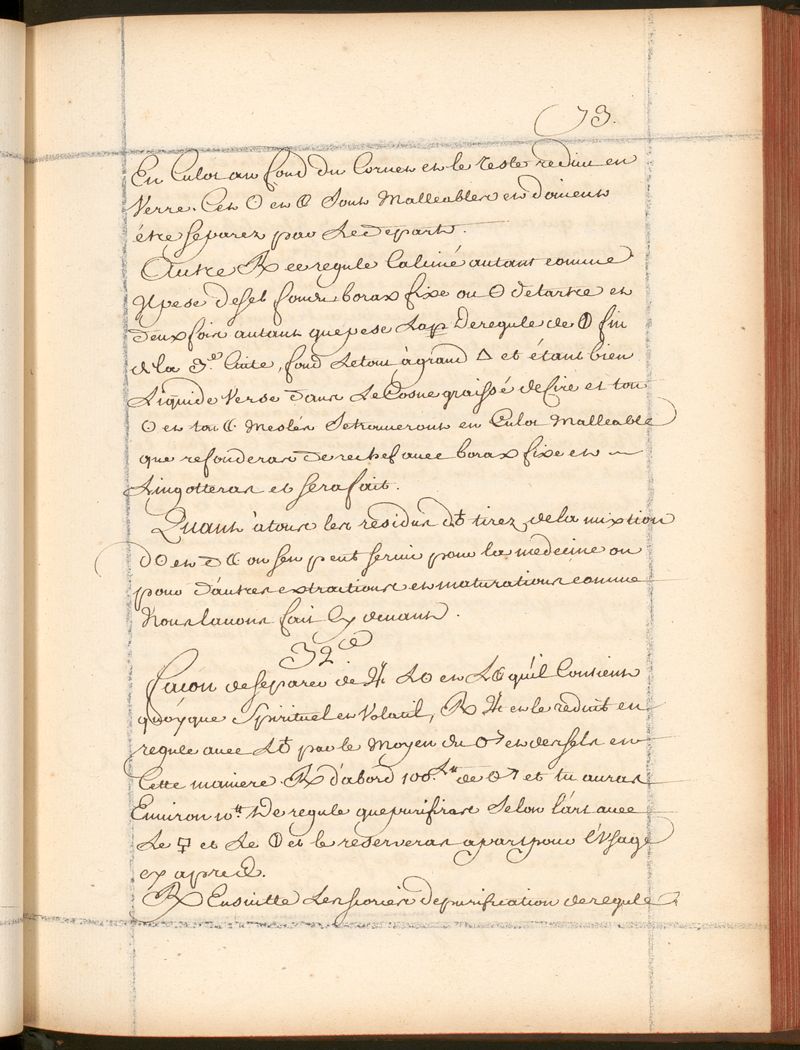 73.
En Culot au fond du Cornet et le reste reduit en
Verre. Cet ☉ et ☾ sont Malleables et doivent
être separez par Le depart.
Autre ℞ ce regule Calciné autant comme
Il pese de sel fondu borax fixe ou 🜔 de tartre et
deux fois autant que pese Las Deregule de 🜕 fin
de la 3.e Cuite, fond Le tout à grand △ et étant bien
Liquide Verse dans Le Cosne graissé de Cire et ton
☉ et ton ☾ Meslés Se trouveront en Culot Malleable
que refonderas derechef avec borax fixe et
Lingotteras et sera fait.
Quant à tous les residus d♄ tirez de la mixtion
d☉ et d☾ on s'en peut servir pour la medecine ou
pour d'autres extractions et maturations comme
Nous lavons fait Cy devant.
32e
Facon de separer de ♃ L☉ et L☾ qu'il Contient
quoyque Spirituel et Volatil, ℞ ♃ et le reduit en
regule avec L♄ par le Moyen du ♂ et des sels en
Cette maniere. ℞ d'abord 100. L.tt de ♂ et tu auras
Environ 10.tt De regule que purifiras Selon l'art avec
Le 🜿 et Le 🜕 et le reserveras apart pour l'Usage
cy apres.
℞ Ensuitte Les scories de purification de regule